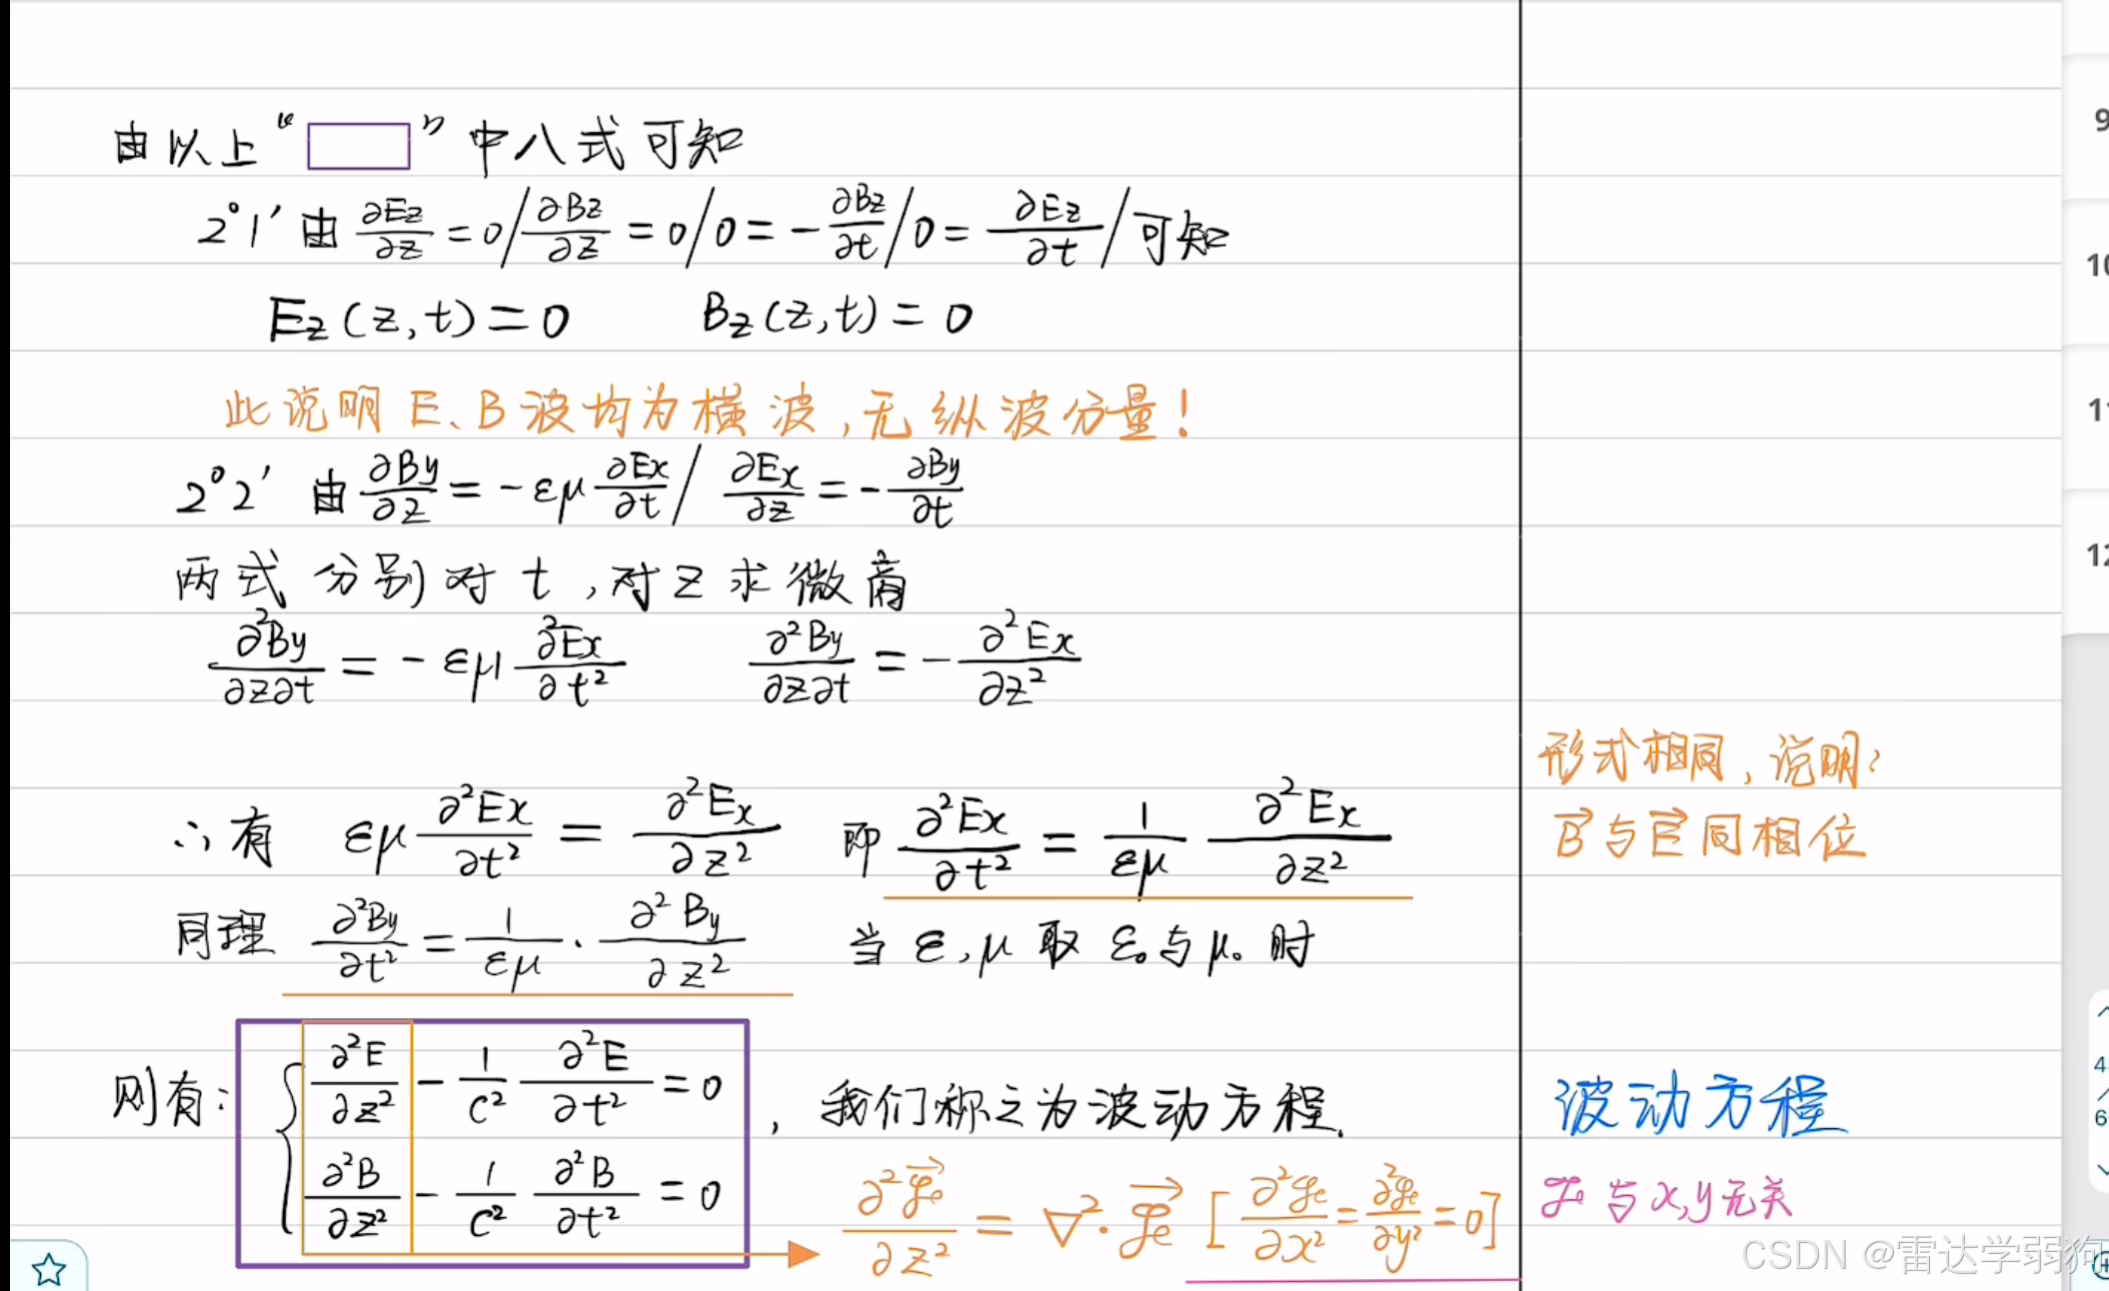 由以上“▭”中八式可知
2°1′ 由 ∂Ez/∂z = 0 / ∂Bz/∂z = 0 / 0 = -∂Bz/∂t / 0 = ∂Ez/∂t / 可知
Ez(z,t) = 0  Bz(z,t) = 0
此说明 E、B波均为横波,无纵波分量!
2°2′ 由 ∂By/∂z = -εμ ∂Ex/∂t / ∂Ex/∂z = -∂By/∂t
两式分别对 t ,对 z 求微商
∂²By/∂z∂t = -εμ ∂²Ex/∂t²  ∂²By/∂z∂t = -∂²Ex/∂z²
形式相同,说明:
∴有 εμ ∂²Ex/∂t² = ∂²Ex/∂z² 即 ∂²Ex/∂t² = 1/εμ ∂²Ex/∂z²
B⃗与E⃗同相位
同理 ∂²By/∂t² = 1/εμ · ∂²By/∂z² 当 ε,μ 取 ε₀与μ₀时
则有: { ∂²E/∂z² - 1/c² ∂²E/∂t² = 0
∂²B/∂z² - 1/c² ∂²B/∂t² = 0
, 我们称之为波动方程.
波动方程
∂² /∂z² = ∇²· [∂² /∂x² = ∂² /∂y² = 0]
与x,y无关
CSDN @雷达学弱狗
9
10
11
12
4
6